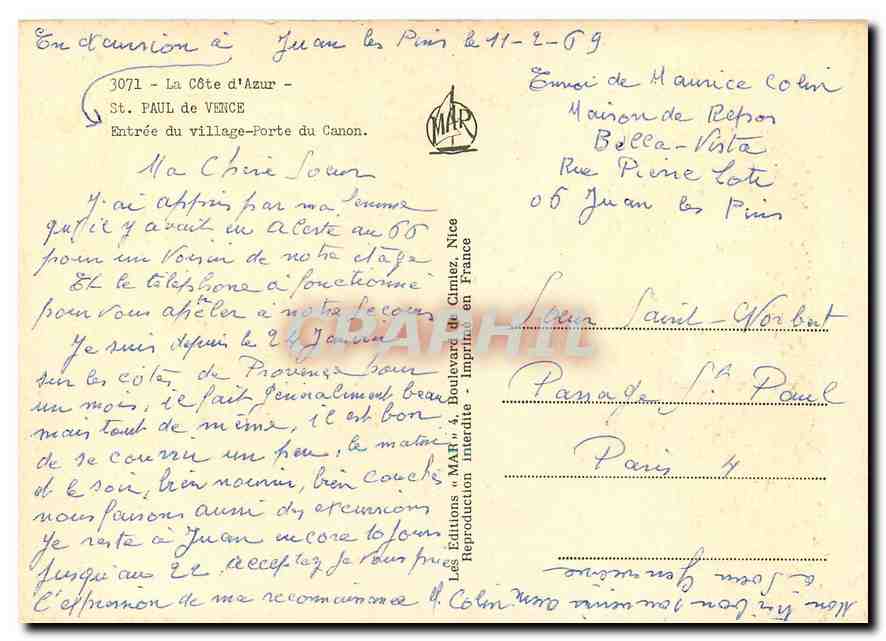 En excursion à Juan les Pins le 11-2-69
3071 - La Côte d'Azur -
St. PAUL de VENCE
Entrée du village-Porte du Canon.
MAR
Ma Chère Soeur
J'ai appris par ma femme
qu'il y avait eu alerte au 66
pour un voisin de notre étage
Et le téléphone à fonctionné
pour vous apeler à notre secours
Je suis depuis le 24 Janvier
sur les côtes de Provence pour
un mois, il fait généralement beau
mais tout de même, il est bon
de se couvrir un peu, le matin
et le soir, bien nourri, bien couchés
nous faisons aussi des excursions
Je reste à Juan encore 10 jours
jusqu'au 22 acceptez je vous prie
l'expression de ma reconnaissance M. Colin
Les Editions « MAR » 4, Boulevard de Cimiez, Nice
Reproduction Interdite - Imprimé en France
Envoi de Maurice Colin
Maison de Repos
Bella-Vista
Rue Pierre Loti
06 Juan les Pins
Soeur Saint-Norbert
Passage St Paul
Paris 4
Mon très bon souvenir
à Soeur Geneviève
CPAPHIL